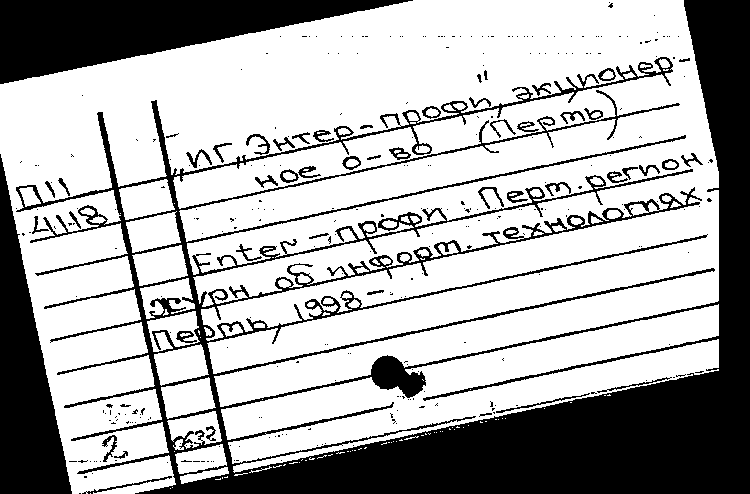 „ИГ „Энтер-профи", акционер-
ное о-во (Пермь)
П11
4118
Enter-профи : Перм. регион.
журн. об информ. технологиях. -
Пермь, 1998 -
2
0632